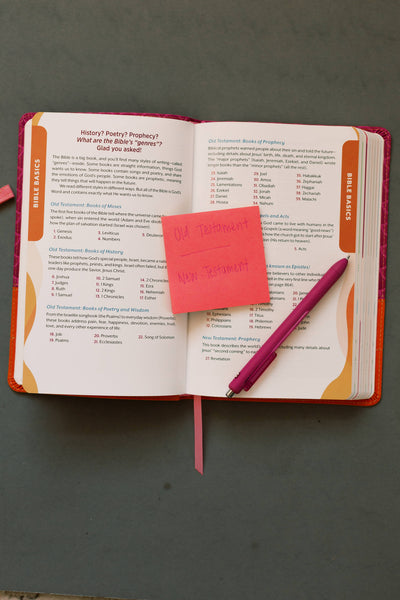 BIBLE BASICS
History? Poetry? Prophecy?
What are the Bible's "genres"?
Glad you asked!
The Bible is a big book, and you'll find many styles of writing—called
"genres"—inside. Some books are straight information, things God
wants us to know. Some books contain songs and poetry, and share
the emotions of God's people. Some books are prophetic, meaning
they tell things that will happen in the future.
We read different styles in different ways. But all of the Bible is God's
Word and contains exactly what He wants us to know.
Old Testament: Books of Moses
The first five books of the Bible tell where the universe came
spoke!), when sin entered the world (Adam and Eve
how the plan of salvation started (Israel was chosen).
1. Genesis
2. Exodus
3. Leviticus
4. Numbers
5.
Old Testament: Books of History
These books tell how God's special people, Israel, became a
leaders like prophets, priests, and kings. Israel often failed, but
one day produce the Savior, Jesus Christ.
6. Joshua
7. Judges
8. Ruth
9. 1 Samuel
10. 2 Samuel
11. 1 Kings
12. 2 Kings
13. 1 Chronicles
14. 2
15. Ezra
16. Nehemiah
17. Esther
Old Testament: Books of Poetry and Wisdom
From the Israelite songbook (the Psalms) to everyday wisdom
these books address pain, fear, happiness, devotion, enemies,
love, and every other experience of life.
18. Job
19. Psalms
20. Proverbs
21. Ecclesiastes
22. Song of Solomon
Old Testament
New Testament
Old Testament: Books of Prophecy
Biblical prophets warned people about their sin and told the future—
including details about Jesus' birth, life, death, and eternal kingdom.
The "major prophets" (Isaiah, Jeremiah, Ezekiel, and Daniel) wrote
longer books than the "minor prophets" (all the rest).
23. Isaiah
24. Jeremiah
25. Lamentations
26. Ezekiel
27. Daniel
28. Hosea
29. Joel
30. Amos
31. Obadiah
32. Jonah
33. Micah
34. Nahum
35. Habakkuk
36. Zephaniah
37. Haggai
38. Zechariah
39. Malachi
and Acts
God came to live with humans in the
Gospels (a word meaning "good news")
show how the church got to start after Jesus'
(His return to heaven).
5. Acts
Known as Epistles)
believers to other individuals
11. Philippians
12. Colossians
17. Titus
18. Philemon
19. Hebrews
New Testament: Prophecy
This book describes the
Jesus' "second coming" to
27. Revelation
BIBLE BASICS